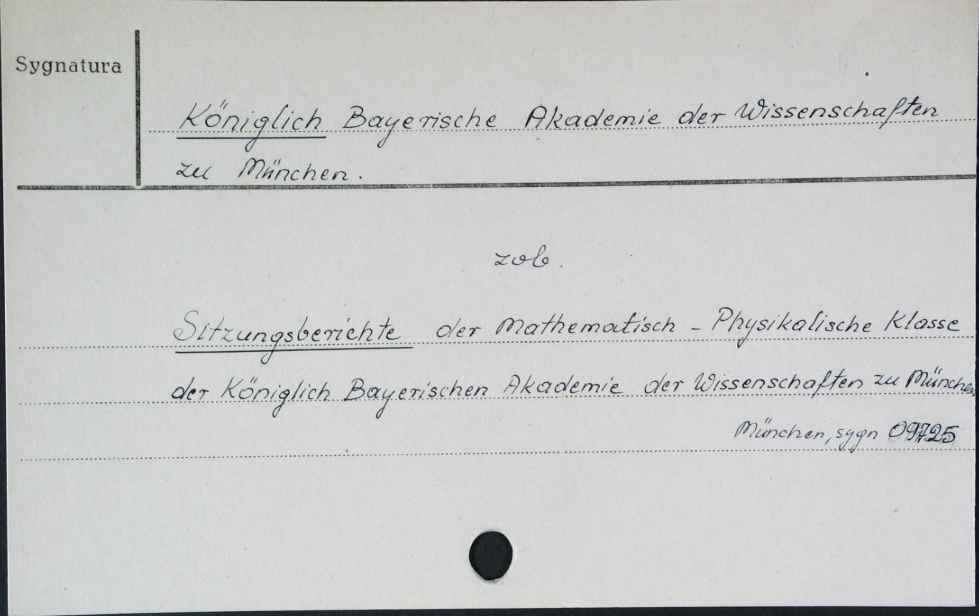 Sygnatura
Königlich Bayerische Akademie der Wissenschaften
zu München.
zob.
Sitzungsberichte der Mathematisch - Physikalische Klasse
der Königlich Bayerischen Akademie der Wissenschaften zu München
München, sygn 09725